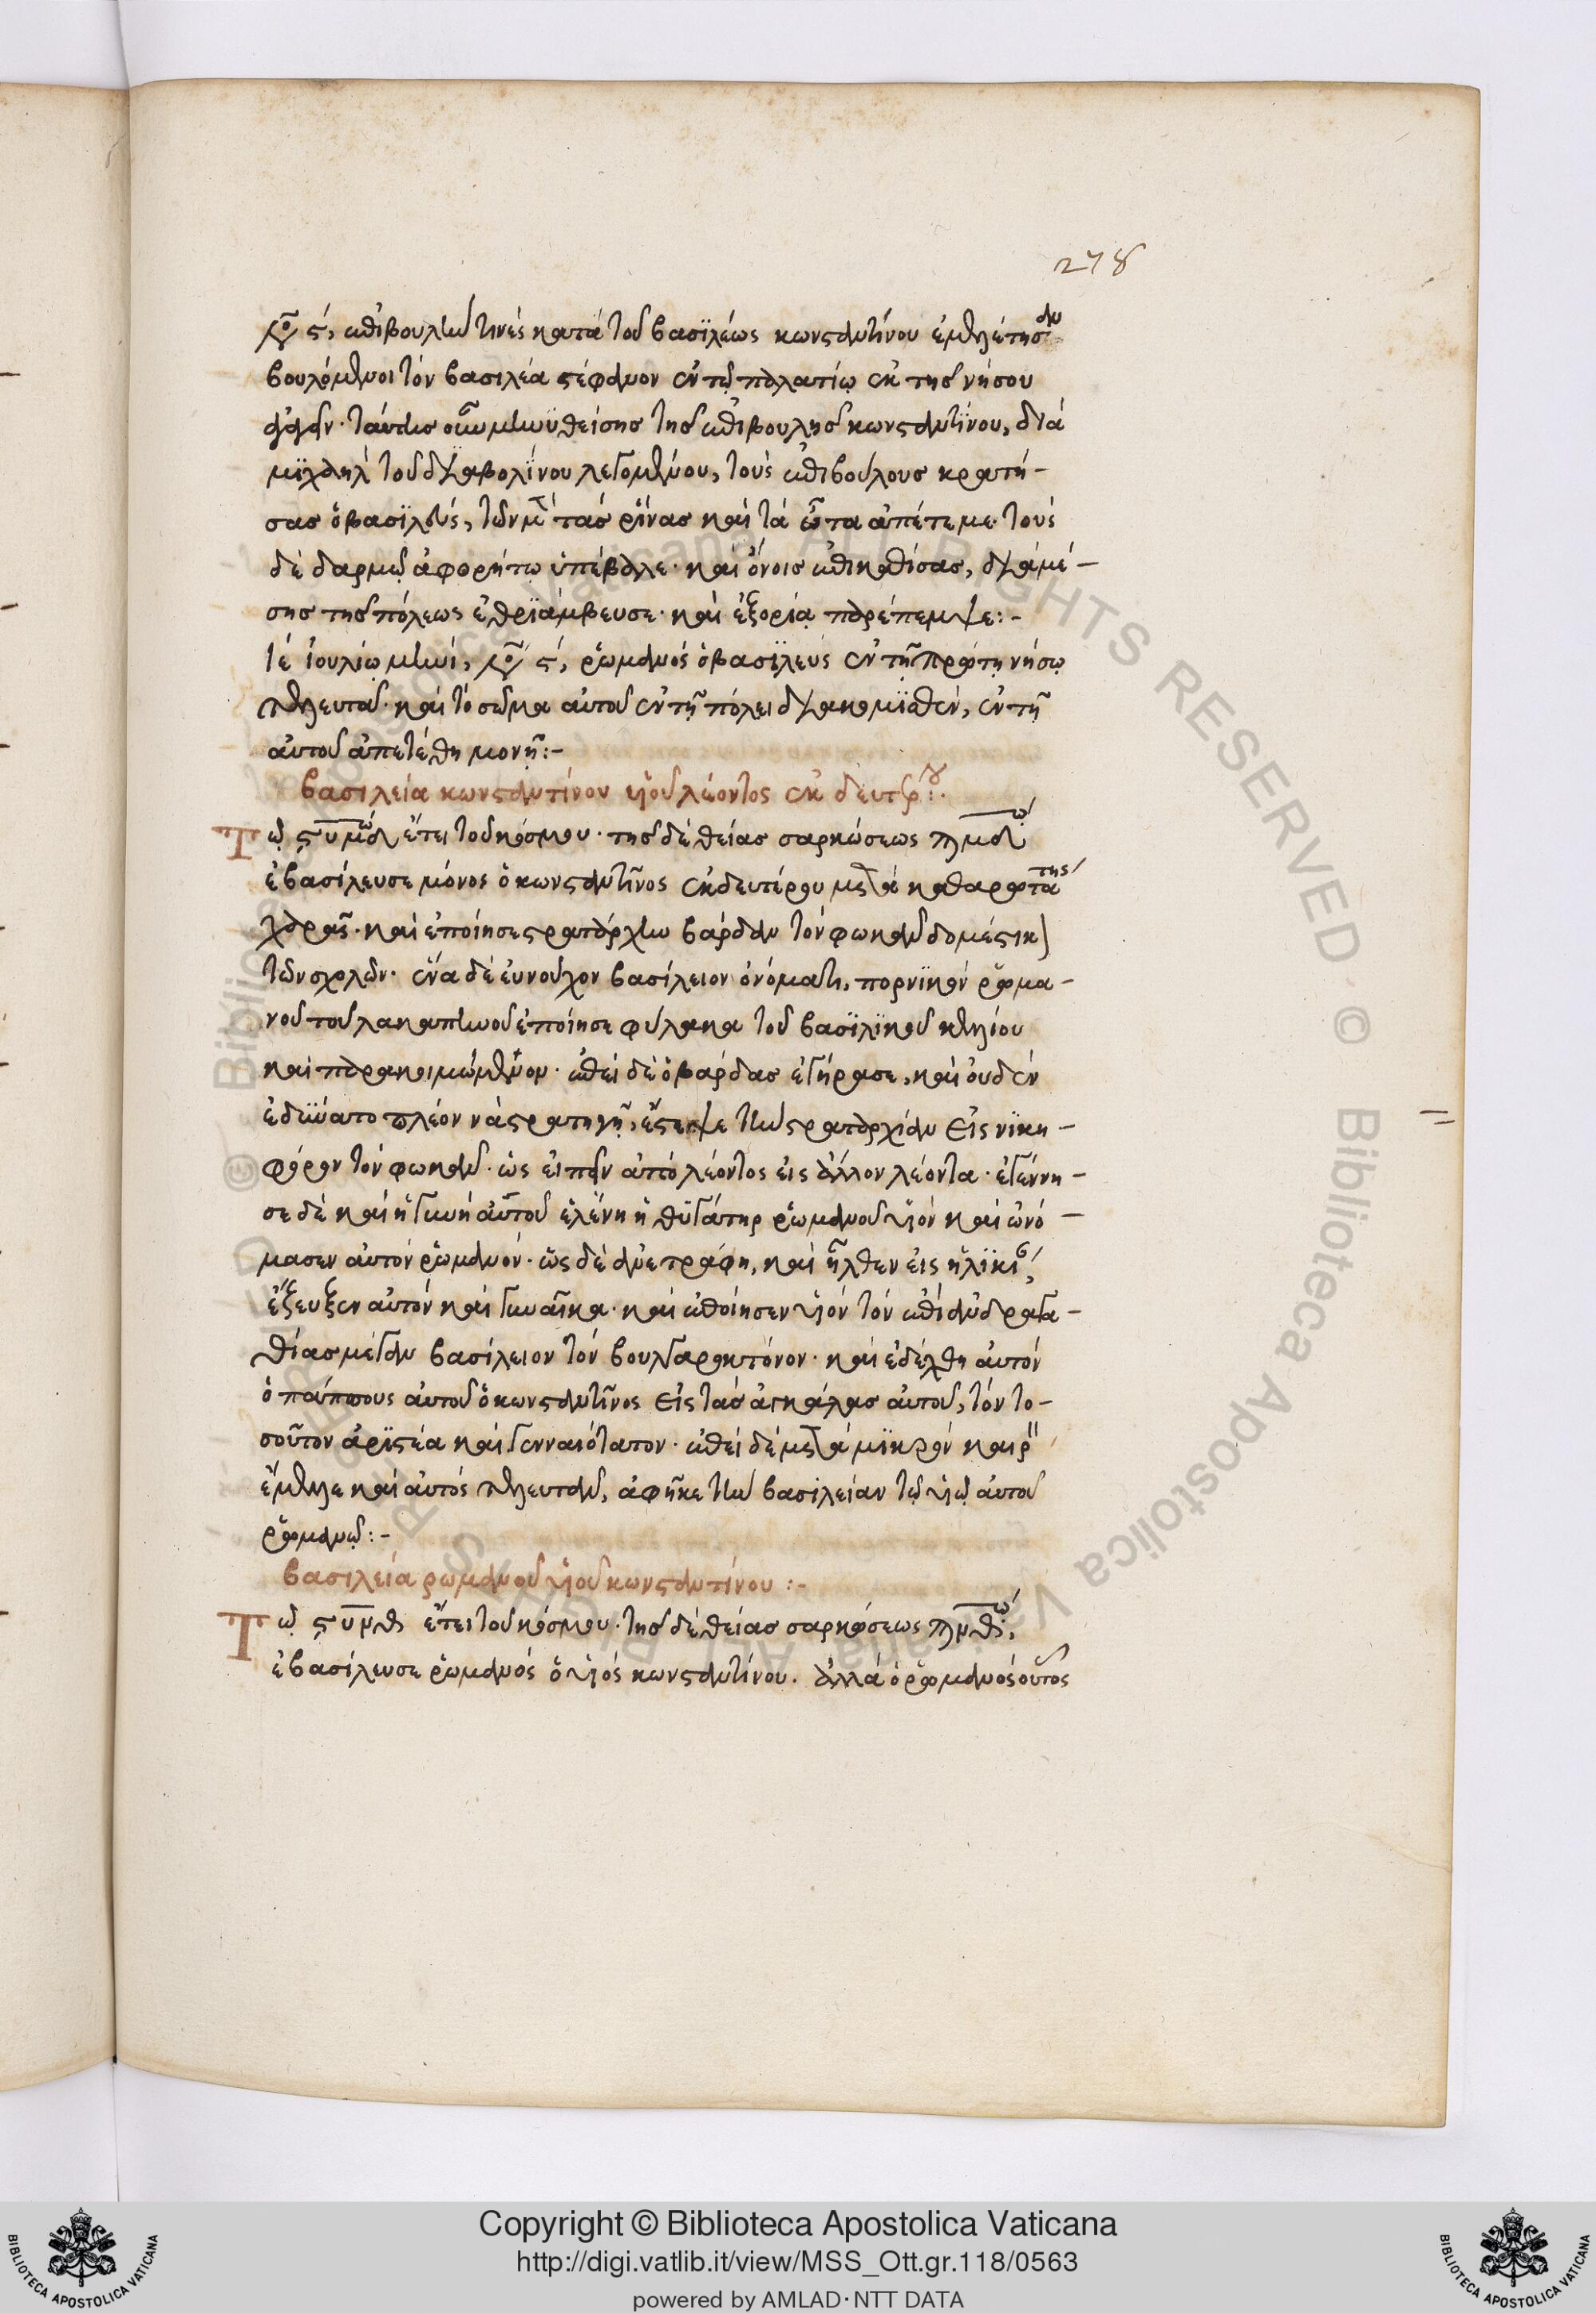 278
ἐπιβουλὴν τινὲς κατὰ τοῦ βασϊλέως κωνσταντίνου ἐμελέτησαν
βουλόμενοι τὸν βασιλέα στέφανον ἐν τῷ παλατίῳ ἐκ τῆς νήσου
ἀγαγεῖν· ταύτης οὖν μηνϋθείσης τῆς ἐπιβουλῆς κωνσταντίνου, διὰ
μϊχαὴλ τοῦ διαβολίνου λεγομένου, τοὺς ἐπιβούλους κρατή-
σας ὁ βασϊλεὺς, τῶν μὲν τὰς ρῖνας καὶ τὰ ὦτα ἀπέτεμε· τοὺς
δὲ δαρμῷ ἀφορήτῳ ὑπέβαλε· καὶ ὄνοις ἐπικαθίσας, διὰ μέ-
σης τῆς πόλεως ἐθρϊάμβευσε· καὶ ἐξορίᾳ παρέπεμψε:-
ιε ἰουλίῳ μηνὶ, ῥωμανὸς ὁ βασϊλεὺς ἐν τῇ πρώτῃ νήσῳ
τελευτᾶ· καὶ τὸ σῶμα αὐτοῦ ἐν τῇ πόλει διακομϊσθὲν, ἐν τῇ
αὐτοῦ ἀπετέθη μονῇ:-
βασιλεία κωνσταντίνου υἱοῦ λέοντος ἐκ δευτέρου.
Τῷ ϛυμδω ἔτει τοῦ κόσμου· τῆς δὲ θείας σαρκώσεως ϡμδω
ἐβασίλευσε μόνος ὁ κωνσταντῖνος ἐκ δευτέρου μετὰ καθαρωτάτης
χαρᾶς· καὶ ἐποίησε στρατάρχην βάρδαν τὸν φωκᾶν δομέστικον
τῶν σχολῶν· ἕνα δὲ εὐνοῦχον βασίλειον ὀνόματι, πορνϊκὸν ῥωμα-
νοῦ τοῦ λακαπηνοῦ ἐποίησε φύλακα τοῦ βασϊλϊκοῦ κελλίου
καὶ παρακοιμώμενον· ἐπεὶ δὲ ὁ βάρδας ἐγήρασε, καὶ οὐδὲν
ἐδύνατο πλέον νὰ στρατηγῇ, ἔστεψε τὴν στραταρχίαν εἰς νϊκη-
φόρον τὸν φωκᾶν· ὡς εἰπεῖν ἀπὸ λέοντος εἰς ἄλλον λέοντα· ἐγέννη-
σε δὲ καὶ ἡ γυνὴ αὐτοῦ ἑλένη ἡ θϋγάτηρ ῥωμανοῦ υἱὸν καὶ ὠνό-
μασεν αὐτὸν ῥωμανόν· ὡς δὲ ἀνετράφη, καὶ ἦλθεν εἰς ἡλϊκίαν,
ἔζευξεν αὐτὸν καὶ γυναῖκα· καὶ ἐποίησεν υἱὸν τὸν ἐπὶ ἀνδραγα-
θίας μέγαν βασίλειον τὸν βουλγαροκτόνον· καὶ ἐδέχθη αὐτὸν
ὁ πάππους αὐτοῦ ὁ κωνσταντῖνος εἰς τὰς ἀγκάλας αὐτοῦ, τὸν το-
σοῦτον ἀρϊστέα καὶ γενναιότατον· ἐπεὶ δὲ μετὰ μϊκρὸν καιρὸν
ἔμελλε καὶ αὐτὸς τελευτᾶν, ἀφῆκε τὴν βασιλείαν τῷ υἱῷ αὐτοῦ
ῥωμανῷ:-
βασιλεία ρωμανοῦ υἱοῦ κωνσταντίνου:-
Τῷ ϛυνθ ἔτει τοῦ κόσμου· τῆς δὲ θείας σαρκώσεως ϡνθω,
ἐβασίλευσε ῥωμανὸς ὁ υἱὸς κωνσταντίνου. ἀλλὰ ὁ ῥωμανὸς οὗτος
Copyright © Biblioteca Apostolica Vaticana
http://digi.vatlib.it/view/MSS_Ott.gr.118/0563
powered by AMLAD·NTT DATA